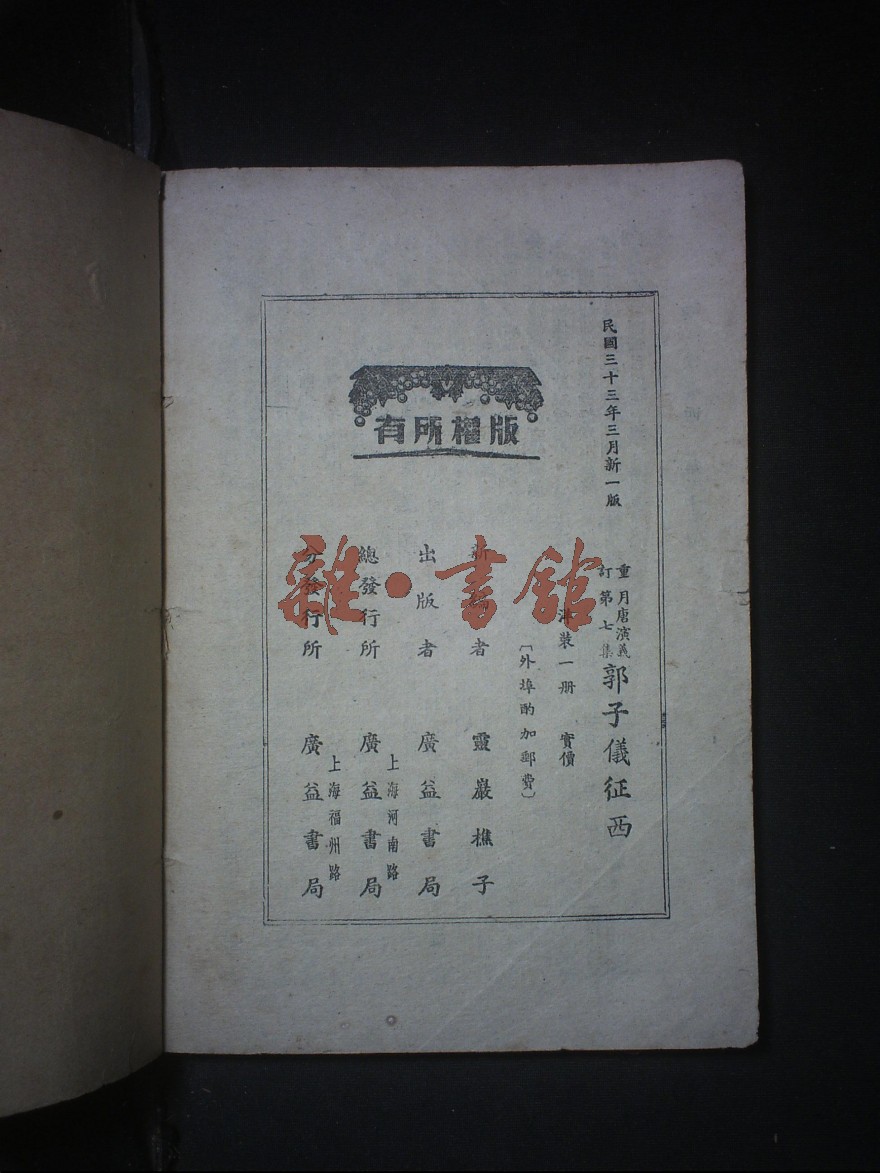 民國三十三年三月新一版
重訂 月唐演義第七集 郭子儀征西
洋裝一册 實價
〔外埠酌加郵費〕
版權所有
新編者 靈巖樵子
出版者 廣益書局
總發行所 上海河南路 廣益書局
分發行所 上海福州路 廣益書局
雜·書館